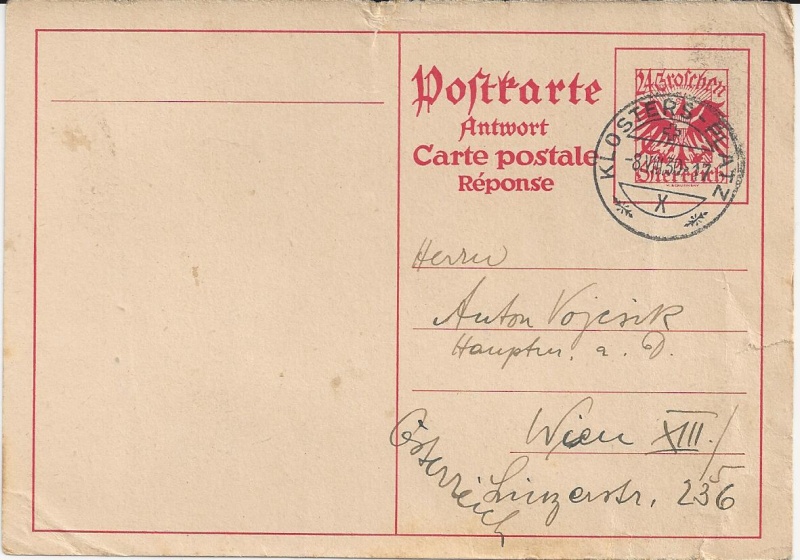 Postkarte
Antwort
Carte postale
Réponse
24 Groschen
Österreich
KLOSTERS-PLATZ
Herrn
Anton Vojcsik
Hauptm. a. D.
Wien XIII./5
Linzerstr. 236
Österreich